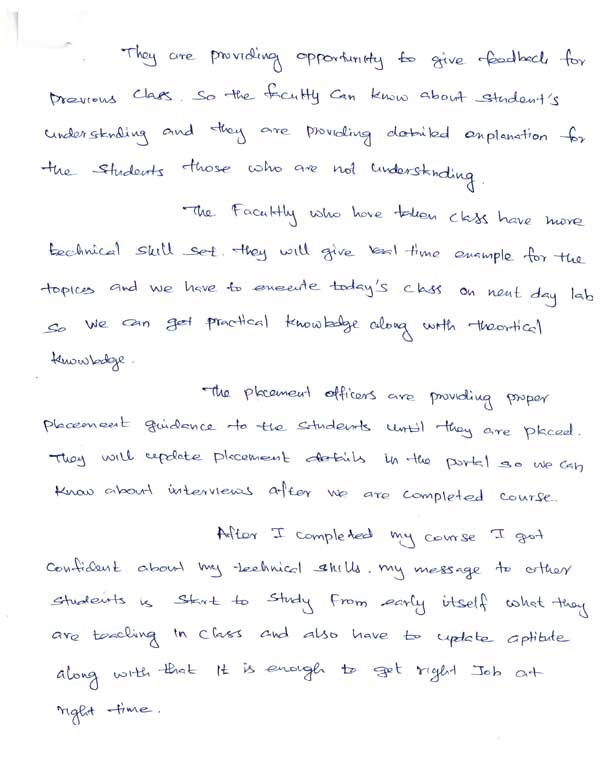 They are providing opportunity to give feedback for
previous class. So the faculty can know about student's
understanding and they are providing detailed explanation for
the students those who are not understanding.
The Facultly who have taken class have more
technical skill set. they will give real time example for the
topices and we have to execute today's class on next day lab
so we can get practical knowledge along with theortical
knowledge.
The placement officers are providing proper
placement guidance to the students until they are placed.
They will update placement details in the portal so we can
know about interviews after we are completed course.
After I completed my course I got
confident about my technical skills. my message to other
students is start to study from early itself what they
are teaching in class and also have to update aptitute
along with that it is enough to get right Job at
right time.